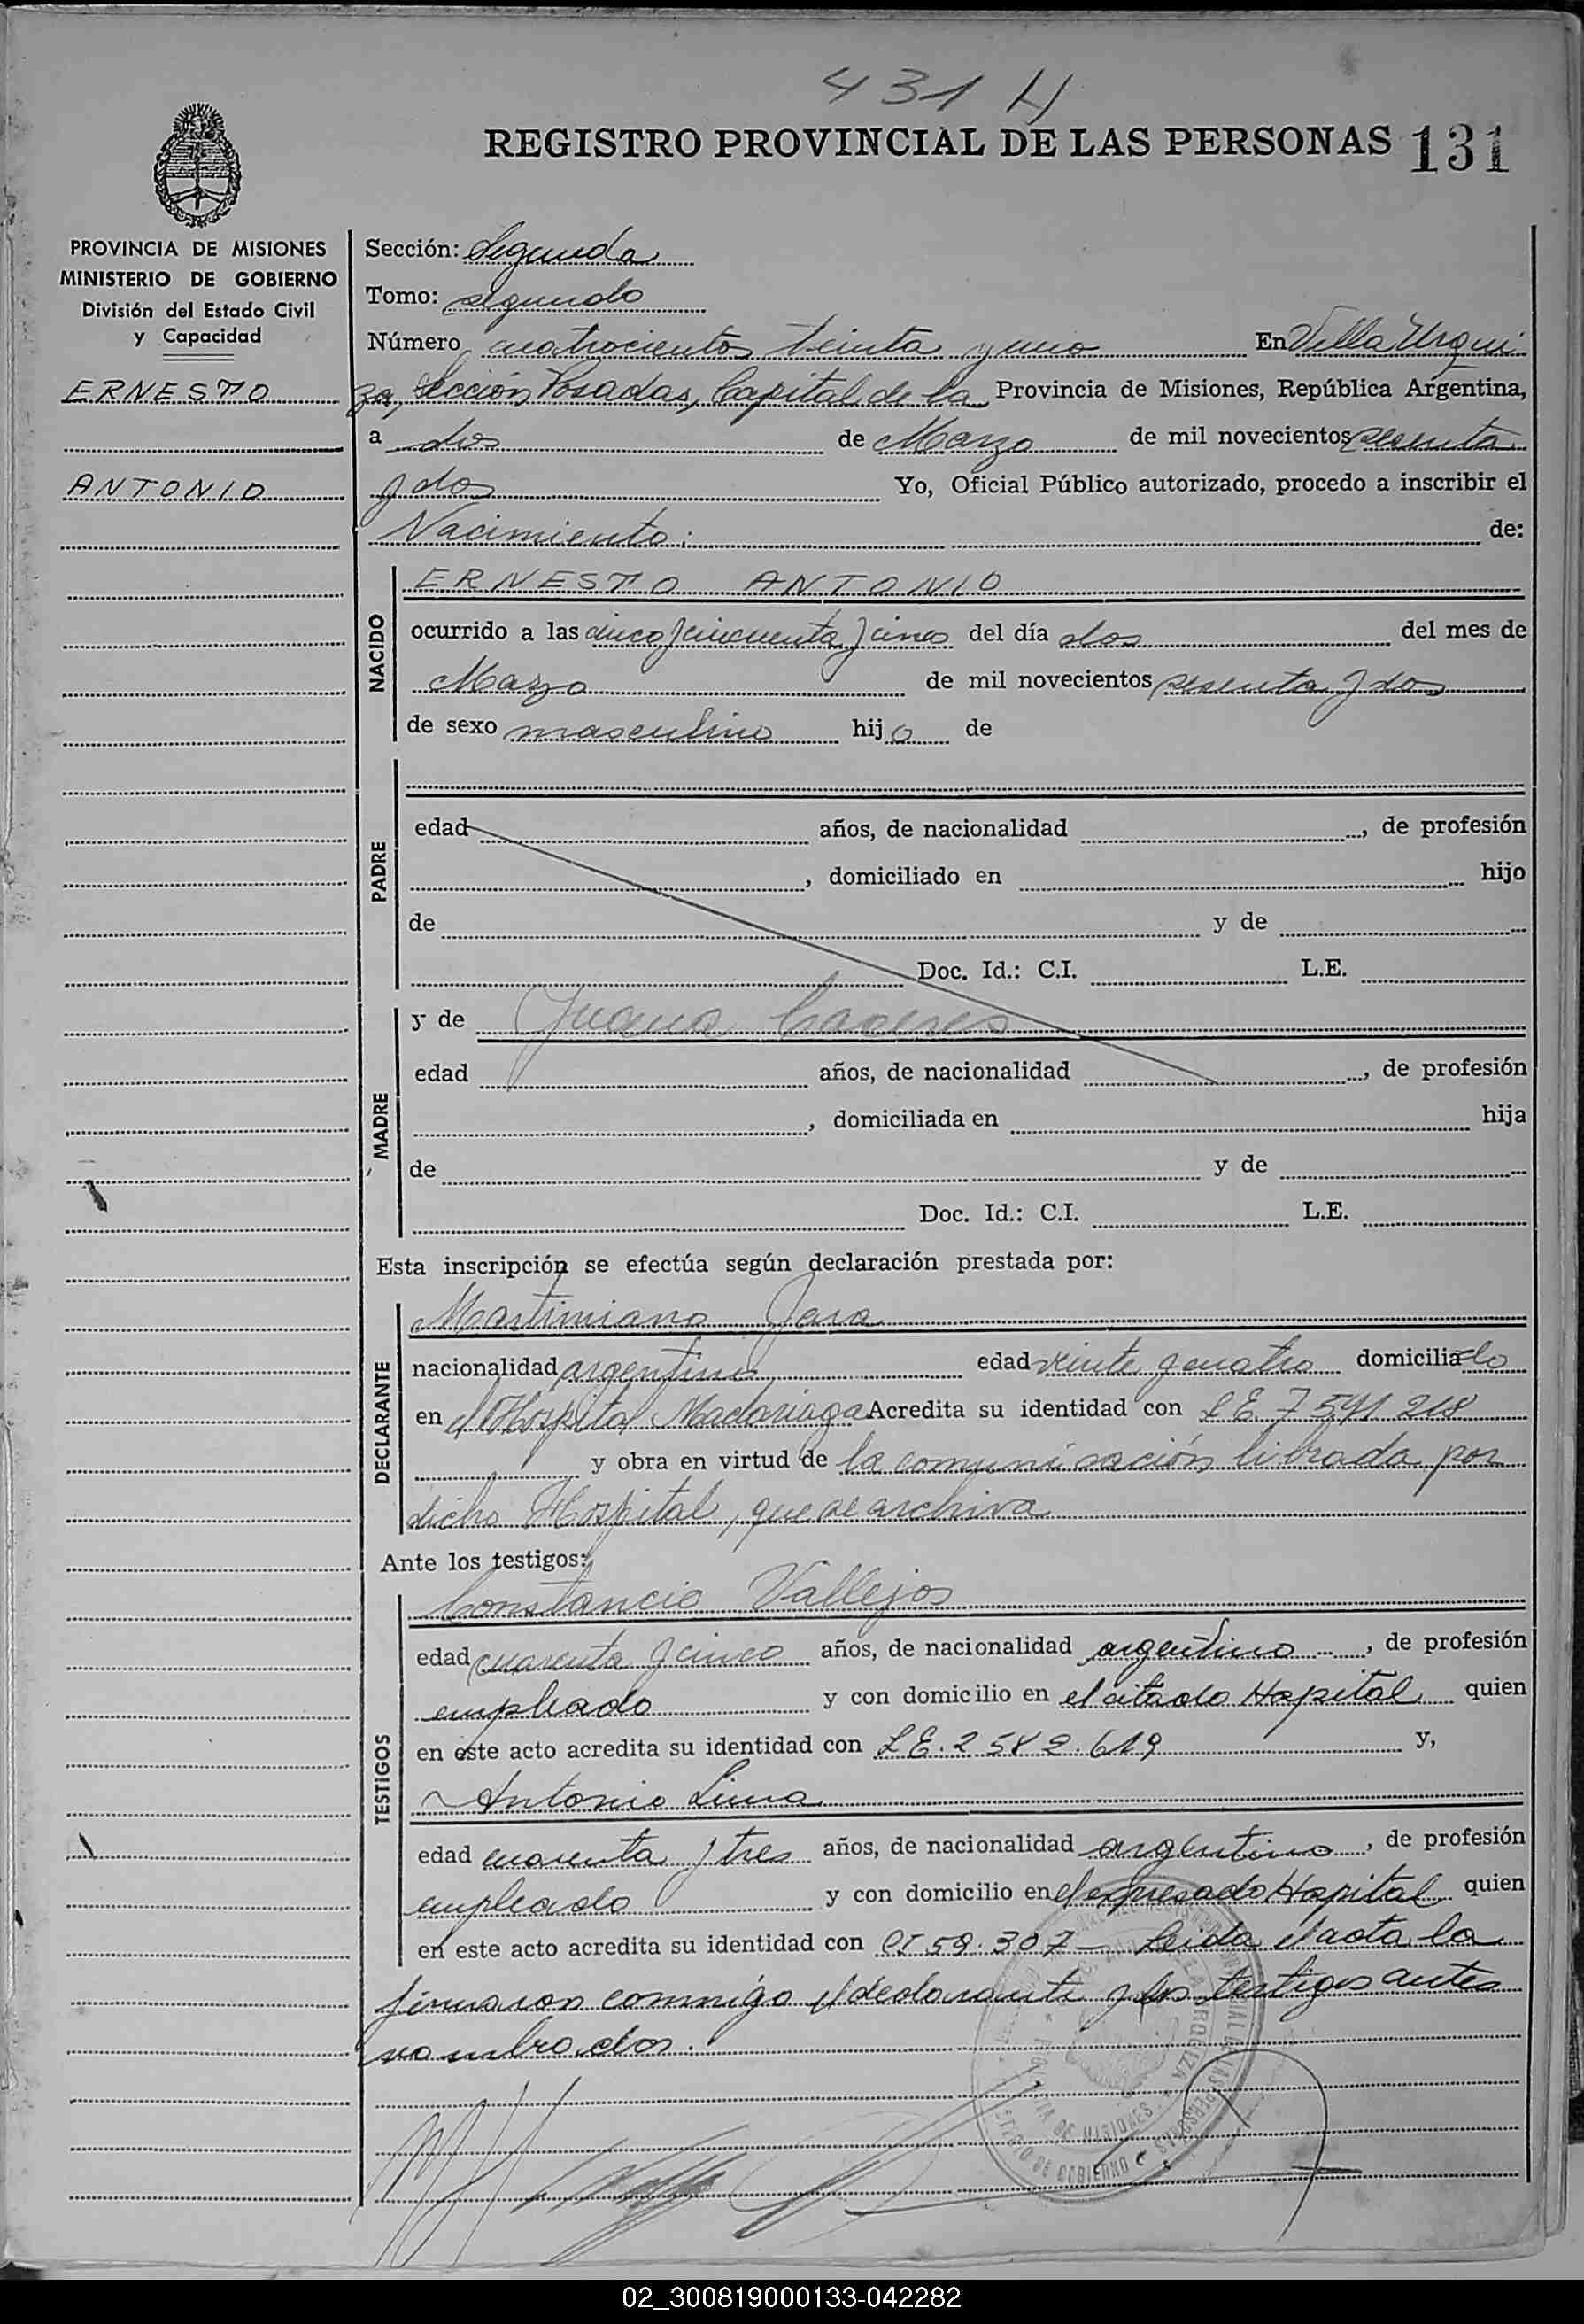 431 H
REGISTRO PROVINCIAL DE LAS PERSONAS 131
PROVINCIA DE MISIONES
MINISTERIO DE GOBIERNO
División del Estado Civil
y Capacidad
ERNESTO
ANTONIO
Sección: Segunda
Tomo: segundo
Número cuatrocientos treinta y uno En Villa Urqui
za, Sección Posadas, Capital de la Provincia de Misiones, República Argentina,
a dos de Marzo de mil novecientos sesenta
y dos Yo, Oficial Público autorizado, procedo a inscribir el
Nacimiento: de:
NACIDO
ERNESTO ANTONIO
ocurrido a las cinco y cincuenta y cinco del día dos del mes de
Marzo de mil novecientos sesenta y dos
de sexo masculino hijo de
PADRE
edad años, de nacionalidad , de profesión
, domiciliado en hijo
de y de
Doc. Id.: C.I. L.E.
MADRE
y de Juana Caceres
edad años, de nacionalidad , de profesión
, domiciliada en hija
de y de
Doc. Id.: C.I. L.E.
Esta inscripción se efectúa según declaración prestada por:
DECLARANTE
Martimiano Jara
nacionalidad argentino edad veinte y cuatro domiciliado
en el Hospital Madariaga Acredita su identidad con L E. 7 591 218
y obra en virtud de la comunicación librada por
dicho Hospital, que se archiva
Ante los testigos:
TESTIGOS
Constancio Vallejos
edad cuarenta y cinco años, de nacionalidad argentino , de profesión
empleado y con domicilio en el citado Hospital quien
en este acto acredita su identidad con L E. 2 582.619 y,
Antonio Lima
edad cuarenta y tres años, de nacionalidad argentino , de profesión
empleado y con domicilio en el expresado Hospital quien
en este acto acredita su identidad con CI 59.307 — Leida el acta la
firmaron conmigo el declarante y los testigos antes
nombrados.
02_300819000133-042282